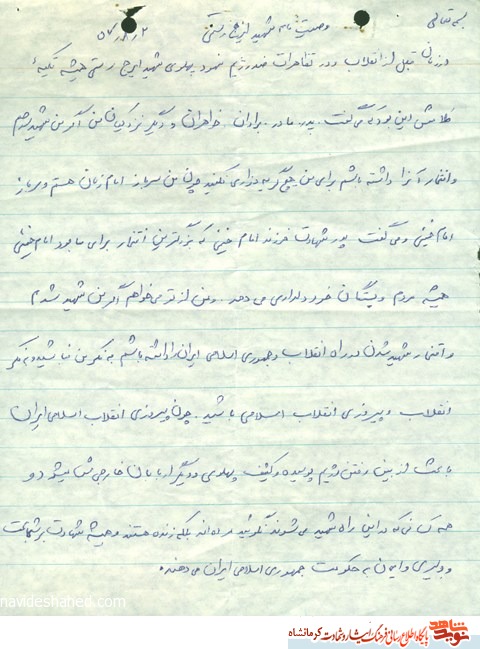 بسمه تعالی
وصیت نامه شهید ایرج رستمی
۵۷/۸/۲
در زمان قبل از انقلاب و در تظاهرات ضد رژیم منحوس پهلوی شهید ایرج رستمی همیشه تکیه
کلامش این بود که می گفت. پدر. مادر. برادران. خواهران و دیگر نزدیکان من اگر من شهید شدم
و افتخار آنرا داشته باشم برای من هیچ گریه و زاری نکنید چون من سرباز امام زمان هستم و سرباز
امام خمینی و می گفت پدر شهادت فرزند امام خمینی که بزرگترین افتخار برای ما بود امام خمینی
همیشه مردم و بستگان خود دلداری می دهد. و من از تو می خواهم اگر من شهید شدم
و افتخار شهید شدن در راه انقلاب و جمهوری اسلامی ایران را داشته باشم به فکر من نباشید و به فکر
انقلاب و پیروزی انقلاب اسلامی باشید. چون پیروزی انقلاب اسلامی ایران
باعث از بین رفتن رژیم پوسیده و کثیف پهلوی و دیگر اربابان خارجی شان میشود و
همه کسانی که در این راه شهید می شوند نگوئید مرده اند بلکه زنده هستند و همیشه شهادت بر شجاعت
و دلیری و ایمان به حکومت جمهوری اسلامی ایران می دهند.
navideshahed.com
نوید شاهد
پایگاه اطلاع رسانی فرهنگ ایثار و شهادت کرمانشاه